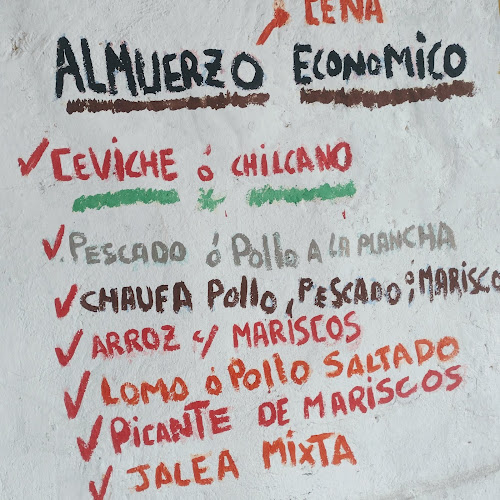 CENA
ALMUERZO ECONOMICO
CEVICHE ó CHILCANO
PESCADO ó Pollo A LA PLANCHA
CHAUFA Pollo, PESCADO, ó MARISCO
ARROZ c/ MARISCOS
LOMO ó Pollo SALTADO
PICANTE DE MARISCOS
JALEA MIXTA